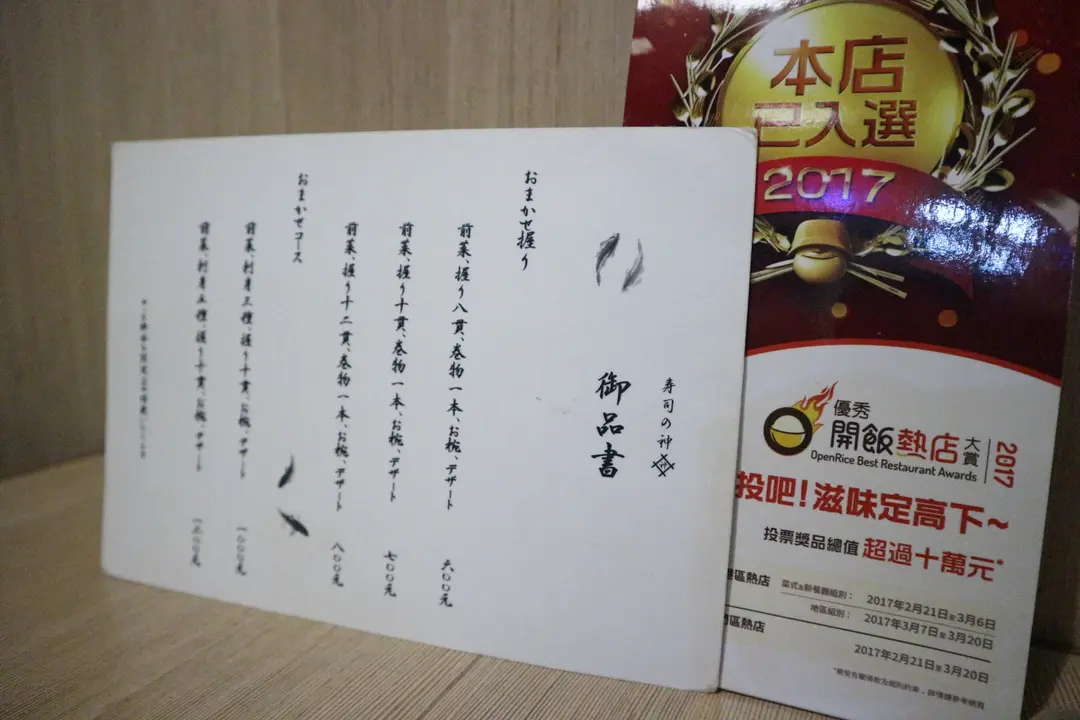 寿司の神
御品書
おまかせ握り
前菜、握り八貫、巻物一本、お椀、デザート 六〇〇元
前菜、握り十貫、巻物一本、お椀、デザート 七〇〇元
前菜、握り十二貫、巻物一本、お椀、デザート 八〇〇元
おまかせコース
前菜、刺身三種、握り十貫、お椀、デザート 一〇〇〇元
前菜、刺身五種、握り十貫、お椀、デザート
本店
已入選
2017
優秀
開飯熱店大賞
2017
OpenRice Best Restaurant Awards
投吧!滋味定高下~
投票獎品總值 超過十萬元*
區熱店
菜式&新餐廳組別: 2017年2月21日至3月6日
地區組別: 2017年3月7日至3月20日
區熱店
2017年2月21日至3月20日